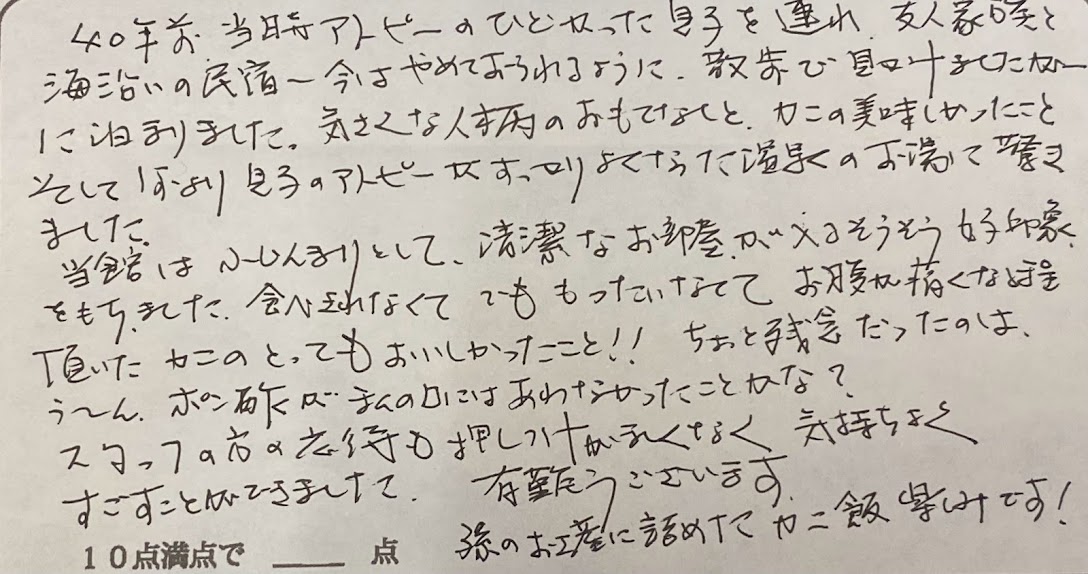 40年前 当時アトピーのひどかった息子を連れ、友人家族と
海沿いの民宿〜今はやめておられるように、散歩で見つけましたが〜
に泊まりました。気さくな人柄のおもてなしと、カニの美味しかったこと
そして何より息子のアトピーがすっかりよくなった温泉のお湯に驚き
ました。
当館はこじんまりとして、清潔なお部屋が 好印象
をもちました。食べきれなくて でも もったいなくて お腹が痛くなる程
頂いた カニのとってもおいしかったこと!! ちょっと残念だったのは、
う〜ん、ポン酢が 私の口にはあわなかったことかな?
スタッフの方の応待も押しつけがましくなく 気持ちよく
すごすことができました。 有難うございます。
孫のお土産に詰めた カニ飯 楽しみです!
10点満点で ____ 点